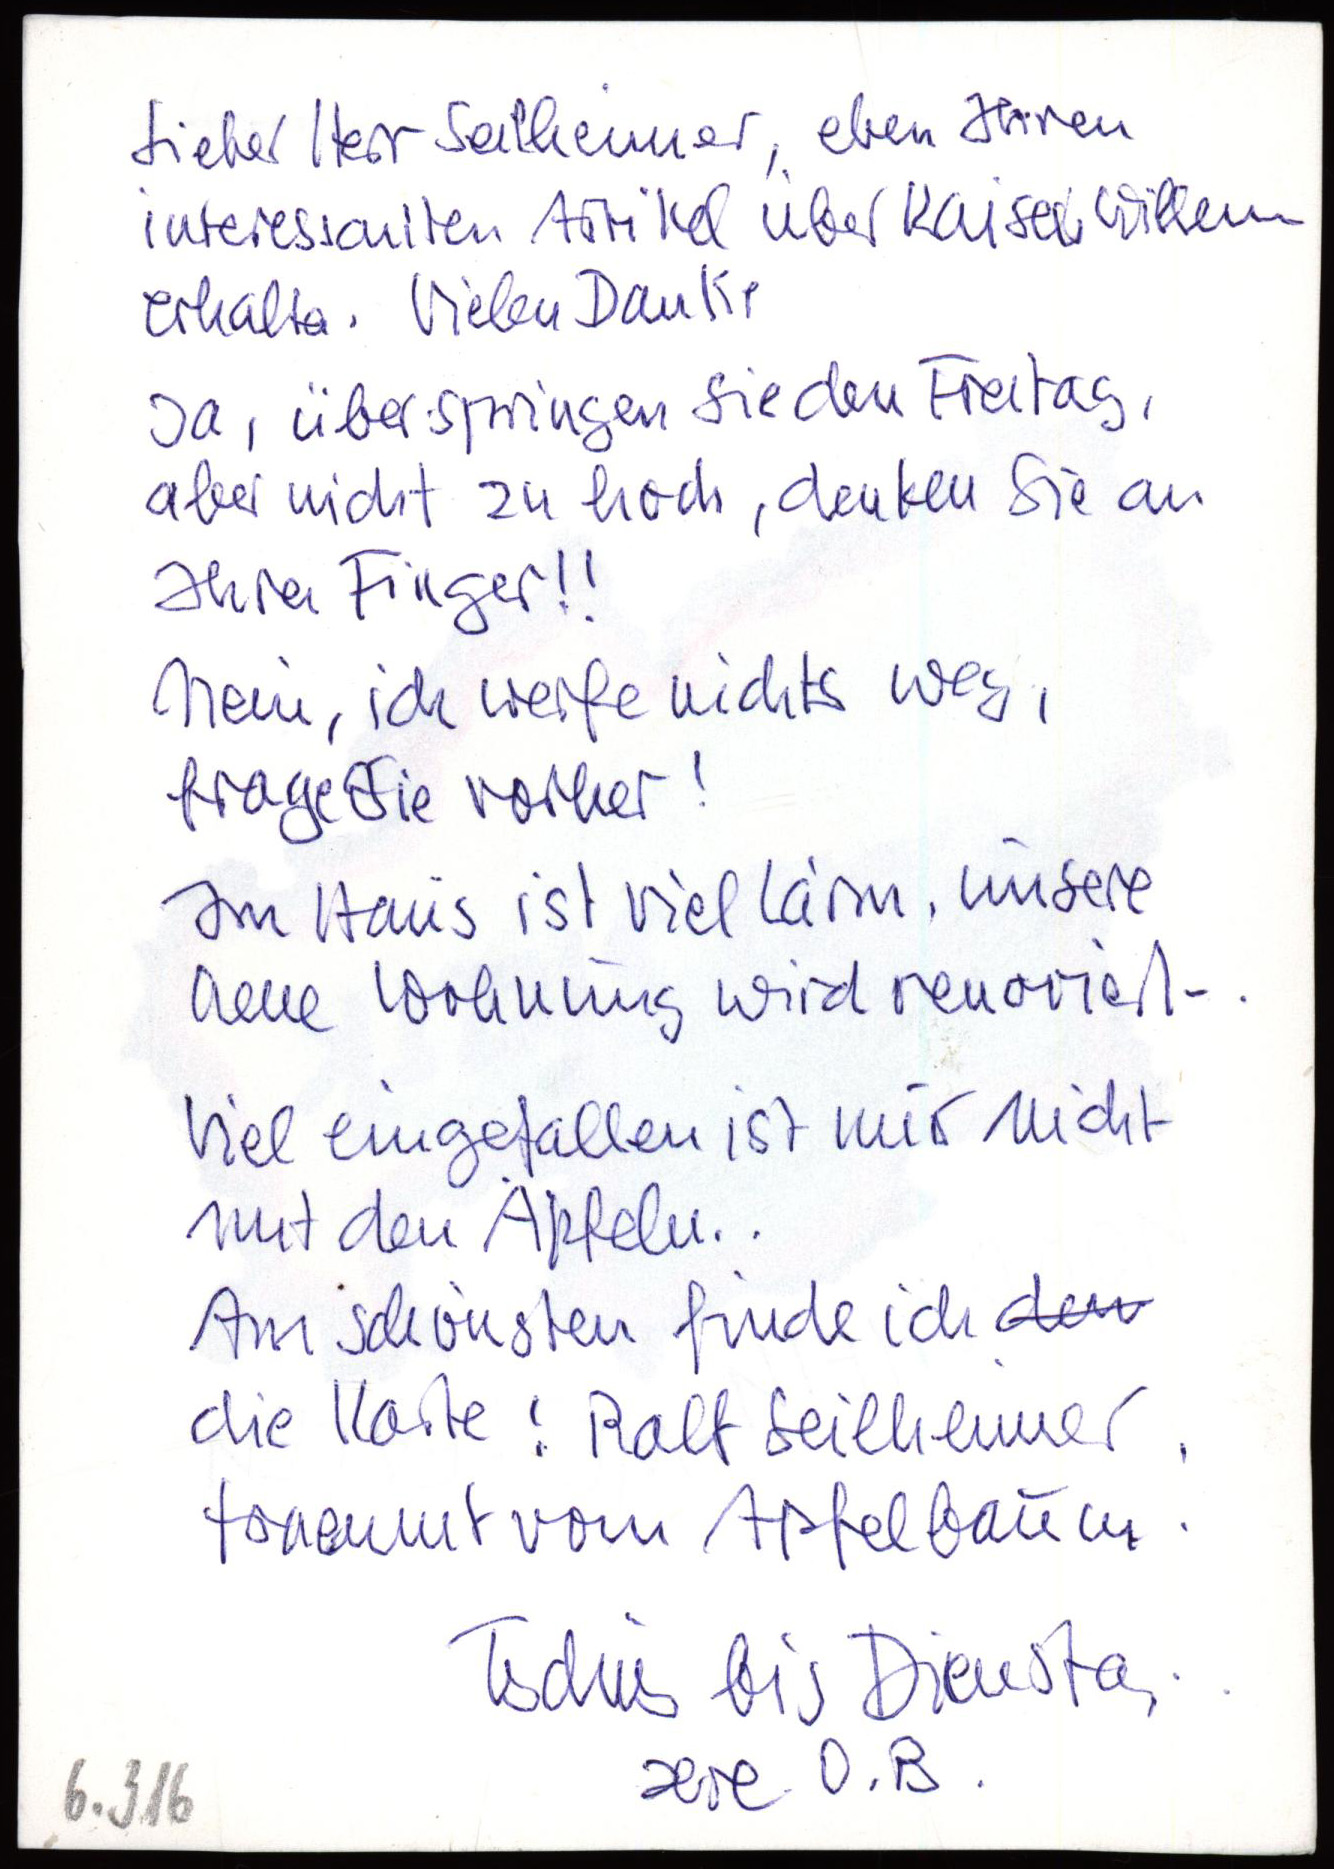 Lieber Herr Seilheimer, eben Ihren
interessanten Artikel über Kaiser Willem
erhalten. Vielen Dank!
Ja, überspringen Sie den Freitag,
aber nicht zu hoch, denken Sie an
Ihren Finger!!
Nein, ich werfe nichts weg,
frage Sie vorher!
Im Haus ist viel Lärm, unsere
neue Wohnung wird renoviert.
Viel eingefallen ist mir nicht
mit den Äpfeln..
Am schönsten finde ich den
die Karte: Ralf Seilheimer,
träumt vom Apfelbaum.
Tschüs bis Dienstag..
Ihre O.B.
6.3.16